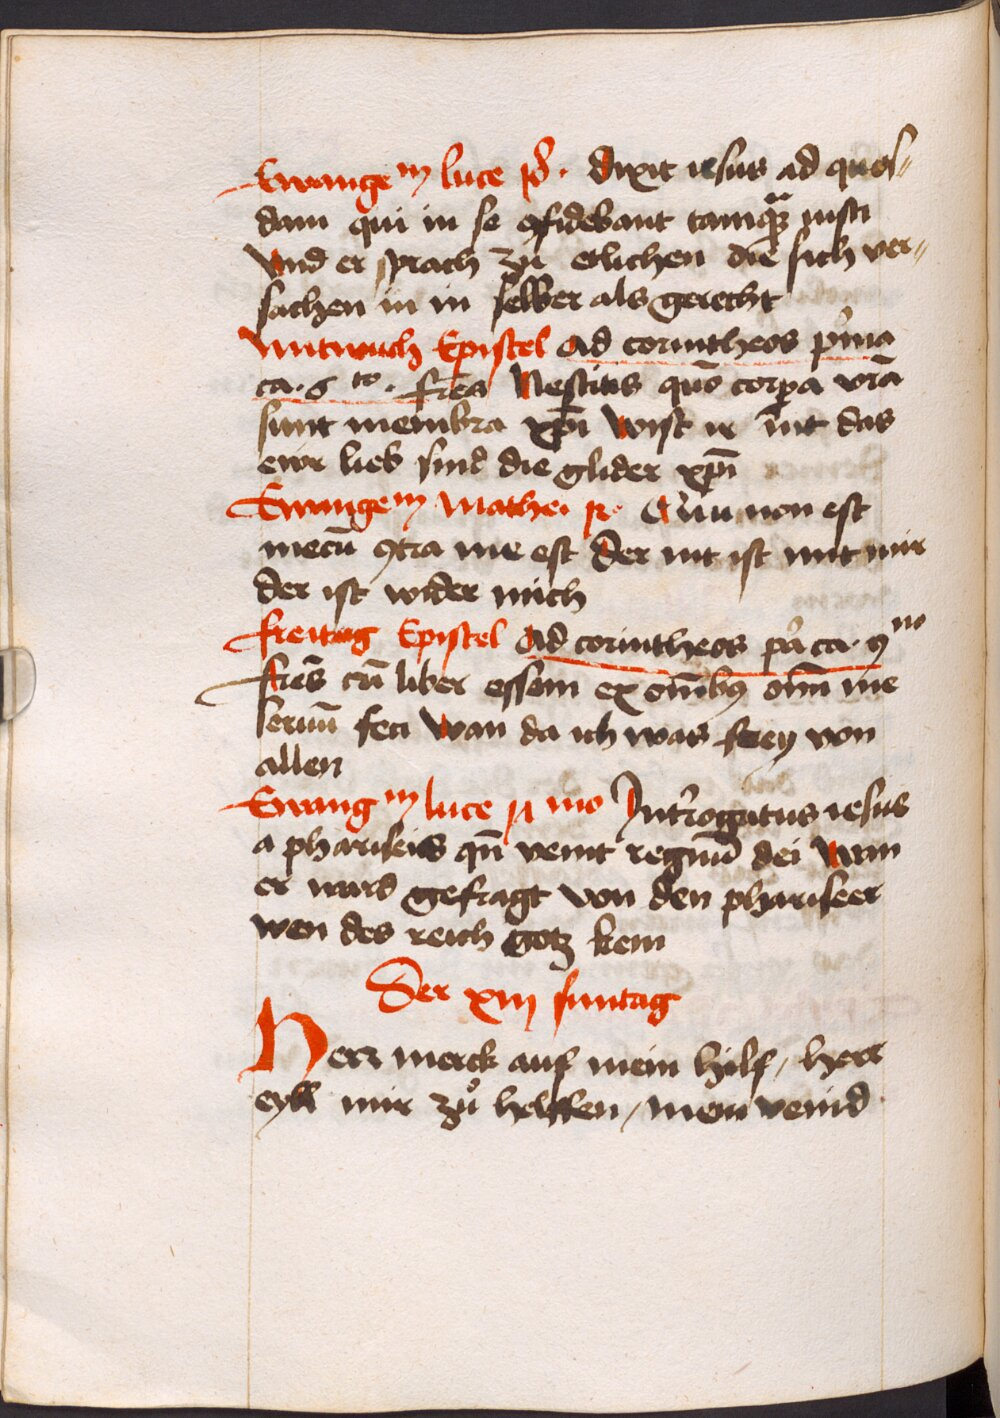 Ewangem luce 18. dixit iesus ad quos-
dam qui in se ꝯfidebant tamqȝ iusti
Vnd er sprach zu etlichen die sich ver-
sachen in in selber als gerecht
Mitwuch Epistel Ad corintheos p̄ma
ca. 6to. fr̄es Nescitis quō corpa vrā
sunt membra xp̄i Wist ir nit das
ewr lieb sind die glider xp̄i
Ewangem Mathei 12. Qui non est
mecū ꝯtra me est Der nit ist mit mir
der ist wider mich
freitag Epistel Ad corintheos p̄a ca. 9no
fr̄es cū liber essem ex om̄ibꝰ om̄ me
seruū feci Wan da ich was frey von
allen
Ewangm luce 17mo Int̄rogatus iesus
a phariseis qn̄ venit regnū dei Wan
er ward gefragt von den phariseer
wen des reich gotz kem
Der xiij suntag
Herr merck auf mein hilf / herr
eyll mir zů helffen / mein veind